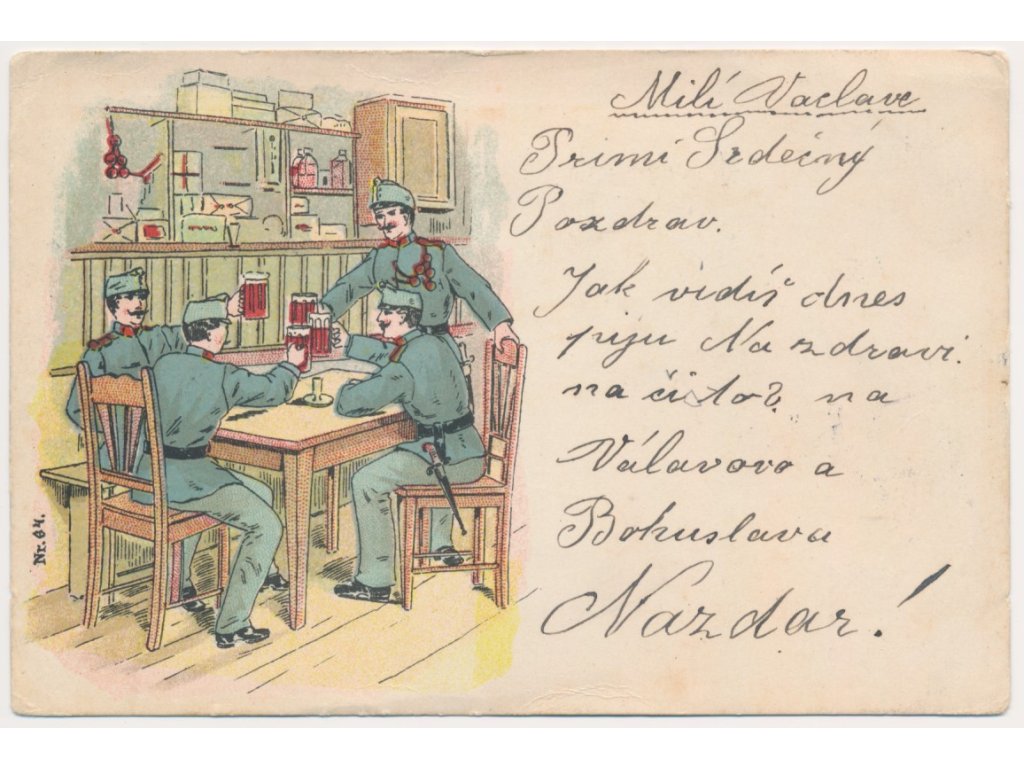 Milí Vaclave
Primi Srdećný
Pozdrav.
Jak vidíš dnes
piju Na zdravi.
na či to? na
Válavovo a
Bohuslava
Nazdar!
Nr. 64.